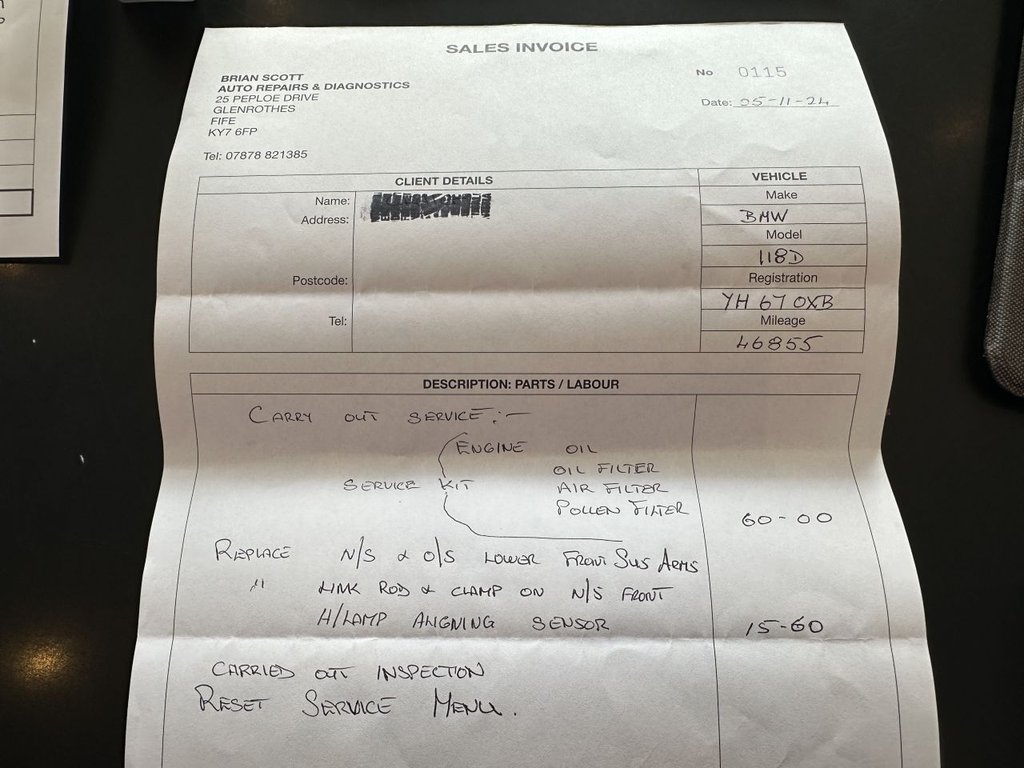 SALES INVOICE
BRIAN SCOTT
AUTO REPAIRS & DIAGNOSTICS
25 PEPLOE DRIVE
GLENROTHES
FIFE
KY7 6FP
Tel: 07878 821385
No 0115
Date: 05-11-24
CLIENT DETAILS
Name:
Address:
Postcode:
Tel:
VEHICLE
Make
BMW
Model
118D
Registration
YH 67 OXB
Mileage
46855
DESCRIPTION: PARTS / LABOUR
CARRY OUT SERVICE:-
ENGINE OIL
OIL FILTER
SERVICE KIT AIR FILTER
POLLEN FILTER 60-00
REPLACE N/S & O/S LOWER FRONT SUS ARMS
" LINK ROD & CLAMP ON N/S FRONT
H/LAMP ALIGNING SENSOR 15-60
CARRIED OUT INSPECTION
RESET SERVICE MENU.